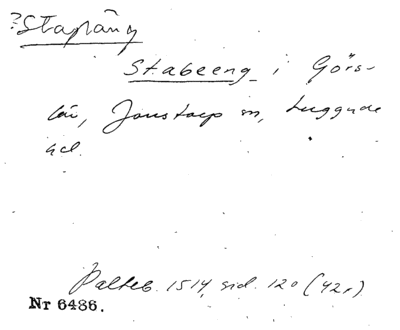 ?Stapäng
Stabeeng i Görs-
löv, Jonstorp sn, Luggude
hd.
Palteb. 1514, sid. 120 (42r)
Nr 6486.